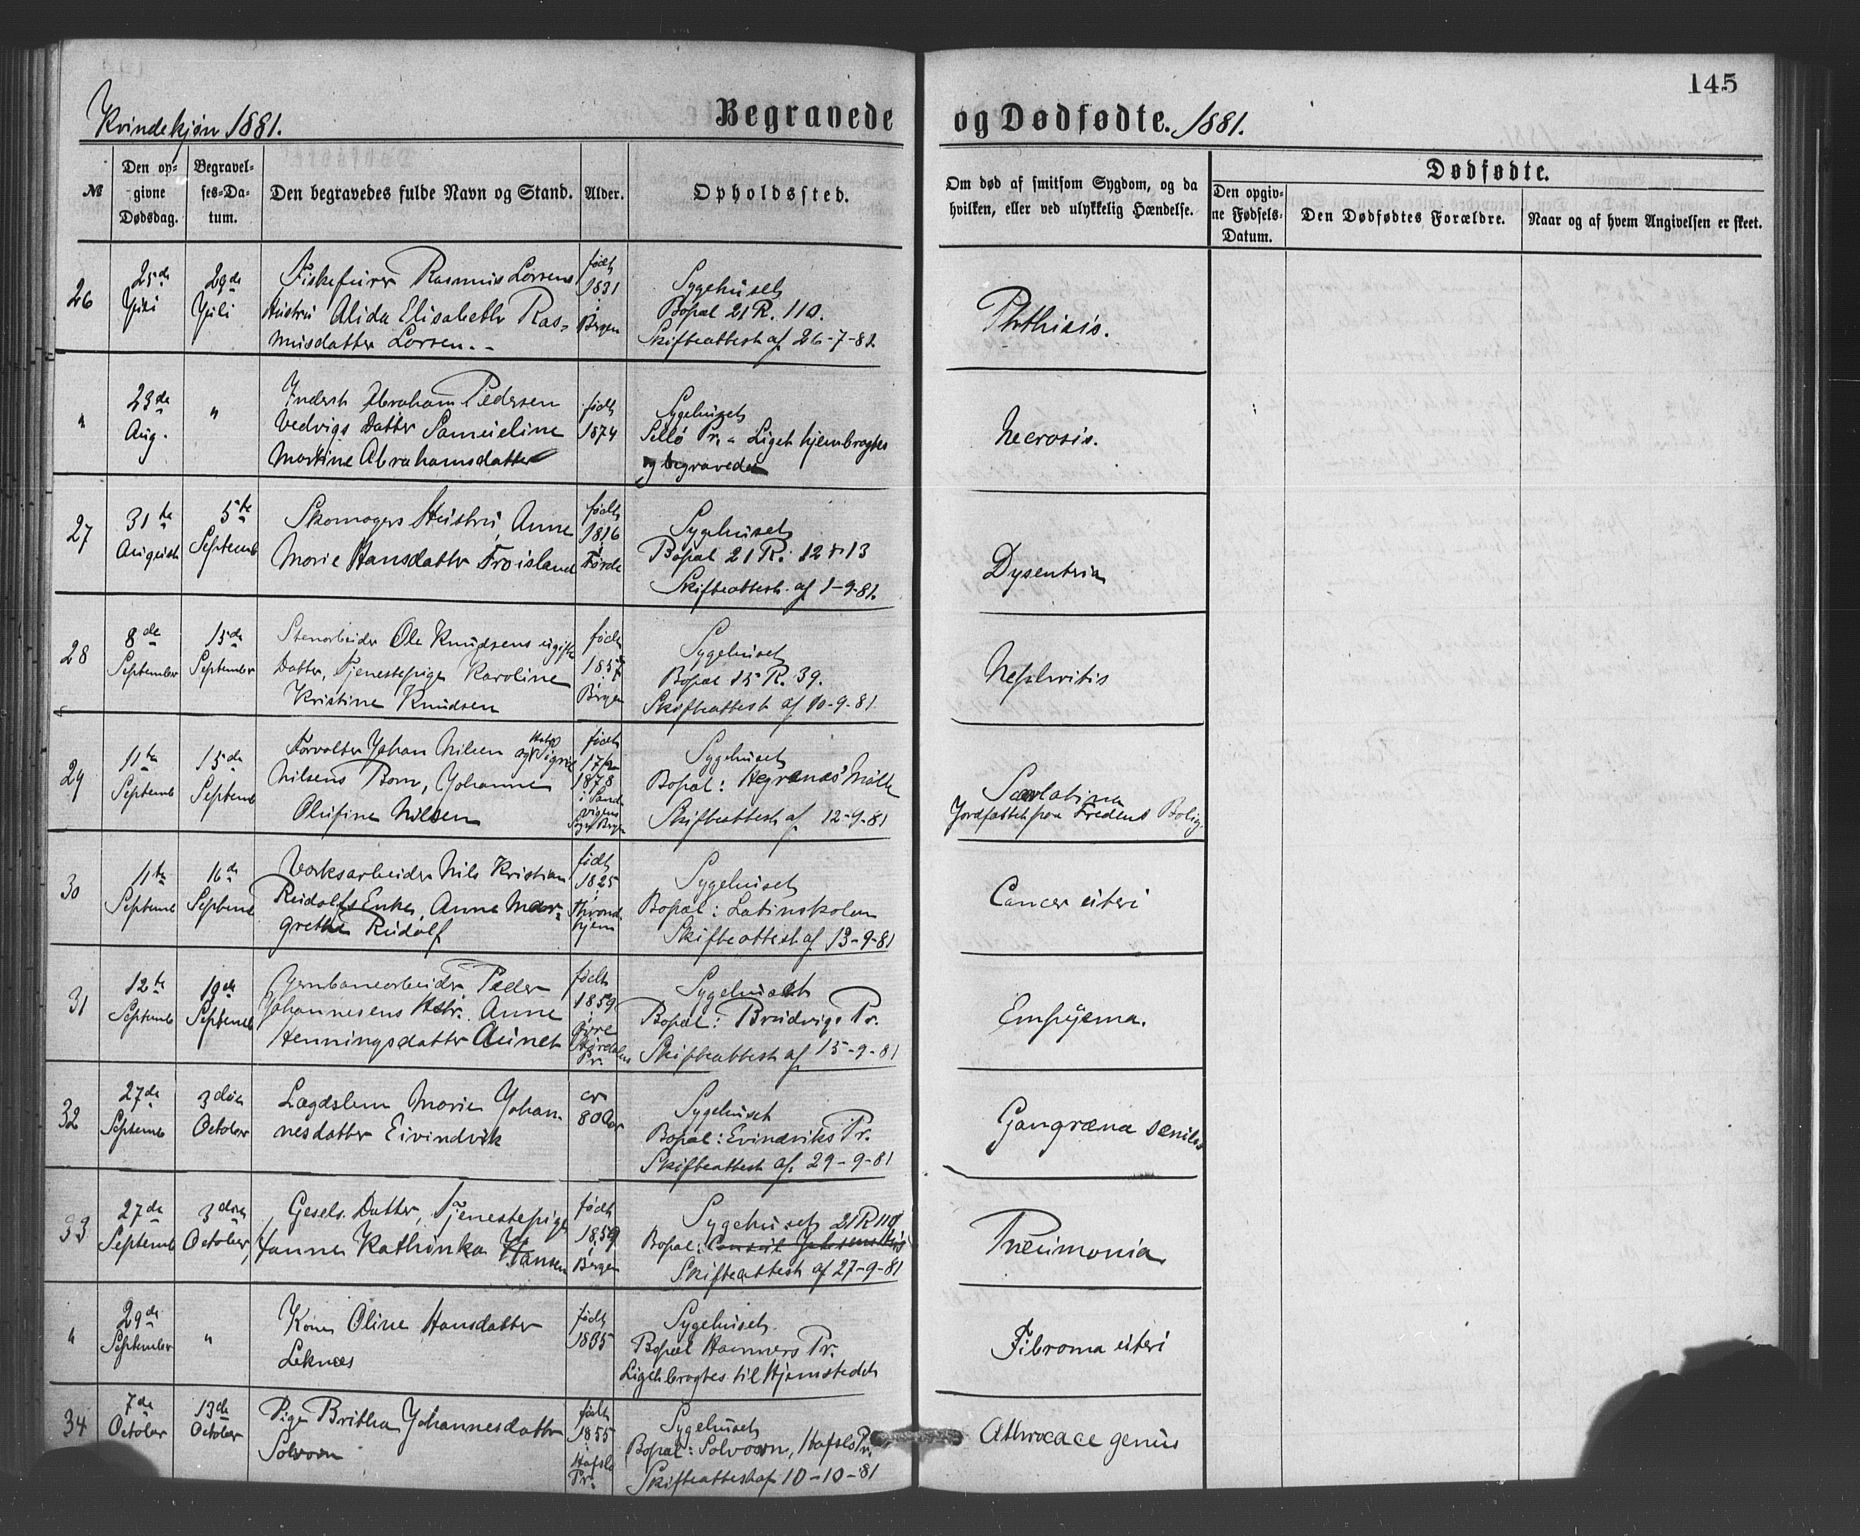 145
Kvindekjøn 1881.
Begravede og Dødfødte. 1881.
№
Den opgivne Dødsdag.
Begravelses-Datum.
Den begravedes fulde Navn og Stand.
Alder.
Opholdssted.
Om død af smitsom Sygdom, og da hvilken, eller ved ulykkelig Hændelse.
Dødfødte.
Den opgivne Fødsels-Datum.
Den Dødfødtes Forældre.
Naar og af hvem Angivelsen er skeet.
26
25de Juli
29de Juli
Fiskefører Rasmus Larsens
Hustru Alida Elisabeth Ras-
musdatter Larsen.
født 1831 i Bergen
Sygehuset
Bopæl 21 R. 110.
Skifteattest af 26-7-81.
Phthisis.
"
23de Aug.
"
Inderst Abraham Pedersen
Vedvigs Datter Samueline
Martine Abrahamsdatter
født 1874
Sygehuset
Sellø Pr. Liget hjembragtes
og begravedes
Necrosis.
27
31te August
5te Septemb
Skomagers Hustru, Anne
Marie Hansdatter Frøisland
født 1816 i Førde
Sygehuset
Bopæl 21 R. 12 & 13
Skifteattest af 1-9-81.
Dysenteria
28
8de September
13de September
Stenarbeider Ole Knudsens ugifte
Datter, Tjenestepige Karoline
Kristine Knudsen
født 1857 i Bergen
Sygehuset
Bopæl 15 R. 39.
Skifteattest af 10-9-81
Nephritis
29
11te Septemb
15de Septemb
Forvalter Johan Nilsen og Hstr Sigrid
Nilsens Barn, Johanne
Olufine Nilsen
født 17/2 1878 i Sandvigens Sogn Bergen
Sygehuset
Bopæl: Hegrenæs Mølle
Skifteattest af 12-9-81
Scarlatina
Jordfæstet paa Fredens Bolig.
30
11te Septemb
16de Septemb
Værksarbeider Nils Kristian
Rudolfs Enke, Anne Mar-
grethe Rudolf
født 1825 i Thrond-
hjem
Sygehuset
Bopæl: Latinskolen
Skifteattest af 13-9-81
Cancer uteri
31
12te Septemb
19de Septemb
Jernbanearbeider Peder
Johannesens Hstr. Anne
Henningsdatter Aunet
født 1859 i Øvre Størdalens Pr.
Sygehuset
Bopæl: Brudvigs Pr.
Skifteattest af 15-9-81
Empyema.
32
27de Septemb
3die October
Lægdslem Marie Johan-
nesdatter Eivindvik
cr 80 Aar
Sygehuset
Bopæl: Evindviks Pr.
Skifteattest af. 29-9-81
Gangræna senilis
33
27de Septemb
3die October
Gesels. Datter, Tjenestepige
Janna Kathinka Hansen
født 1859 i Bergen
Sygehuset 21 R 110
Bopæl: Consul
Skifteattest af 27-9-81
Pneumonia
"
29de September
"
Kone Oline Hansdatter
Leknæs
født 1835
Sygehuset.
Bopæl Hammers Pr.
Liget bragtes til Hjemstedet
Fibroma uteri
34
7de October
13de October
Pige Britha Johannesdatter
Solvorn
født 1855 i Hafslo Pr.
Sygehuset
Bopæl: Solvorn, Hafslo Pr.
Skifteattest af 10-10-81
Athrocace genus